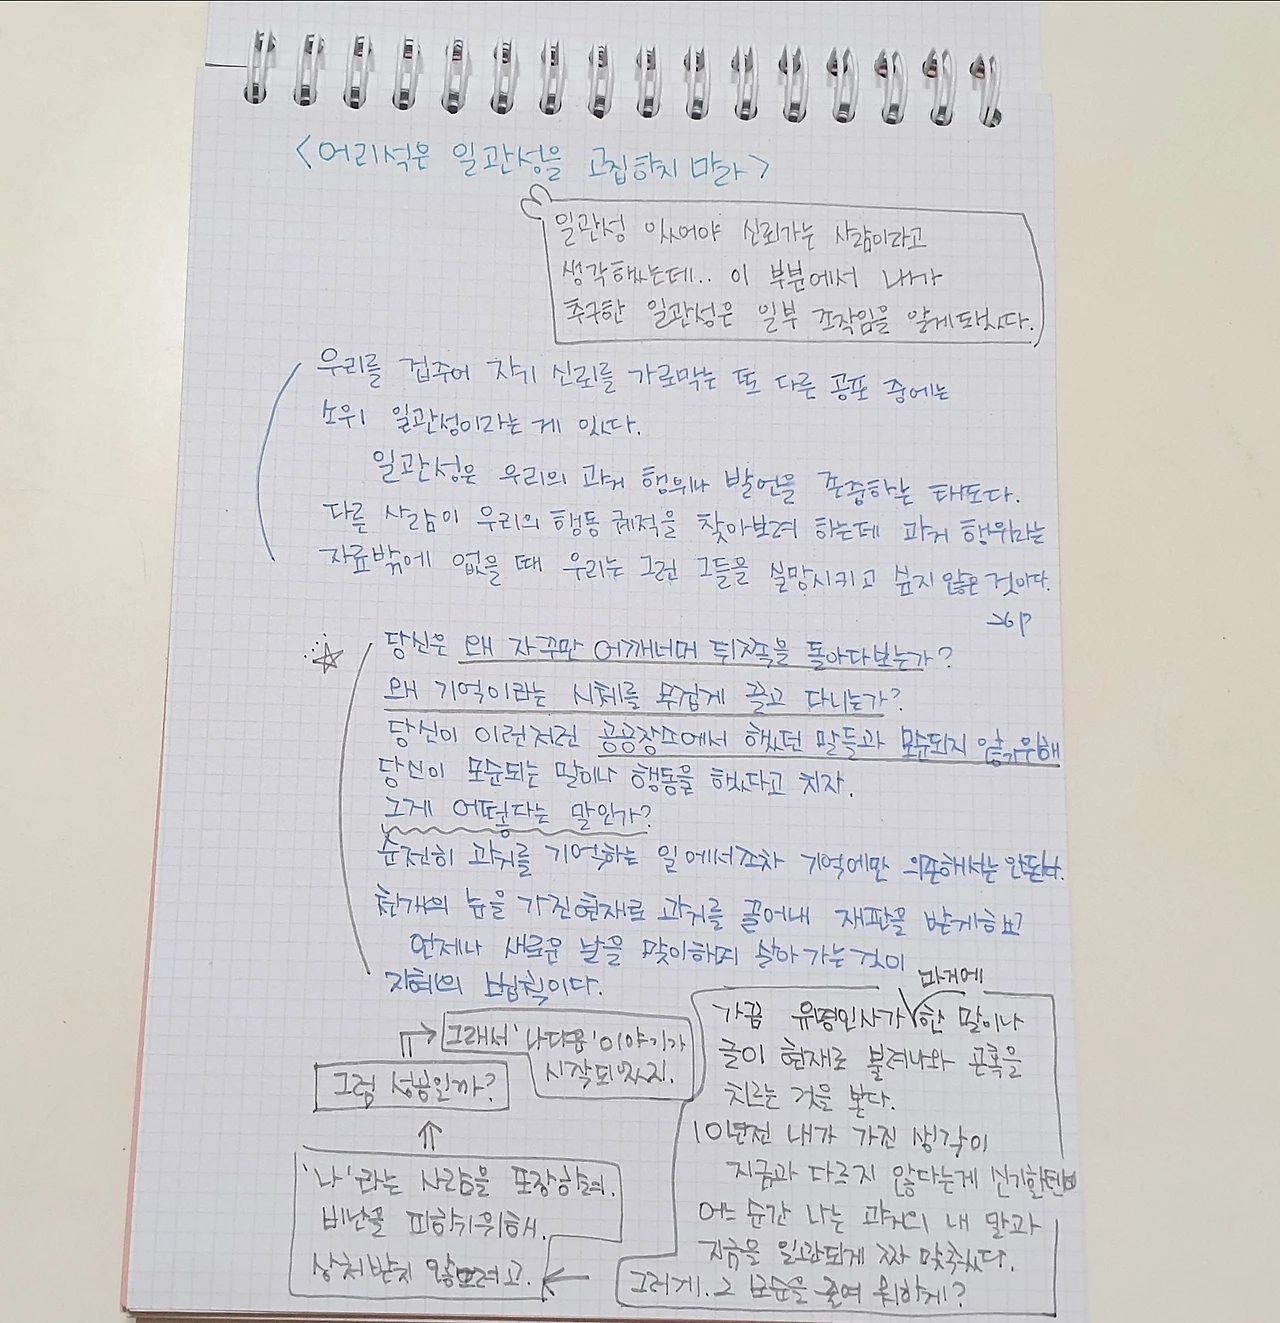 <어리석은 일관성을 고집하지 마라>
일관성 있어야 신뢰가는 사람이라고
생각했는데.. 이 부분에서 내가
추구한 일관성은 일부 조작임을 알게됐다.
우리를 겁주어 자기 신뢰를 가로막는 또 다른 공포 중에는
소위 일관성이라는 게 있다.
일관성은 우리의 과거 행위나 발언을 존중하는 태도다.
다른 사람이 우리의 행동 궤적을 찾아보려 하는데 과거 행위라는
자료밖에 없을 때 우리는 그런 그들을 실망시키고 싶지 않은 것이다.
당신은 왜 자꾸만 어깨너머 뒤쪽을 돌아다보는가?
왜 기억이라는 시체를 무겁게 끌고 다니는가?
당신이 이런저런 공공장소에서 했던 말들과 모순되지 않기위해
당신이 모순되는 말이나 행동을 했다고 치자.
그게 어떻다는 말인가?
순전히 과거를 기억하는 일에서조차 기억에만 의존해서는 안된다.
천개의 눈을 가진 현재로 과거를 끌어내 재판을 받게하고
언제나 새로운 날을 맞이하며 살아가는것이
지혜의 법칙이다.
가끔 유명인사가 과거에 한 말이나
글이 현재로 불려나와 곤혹을
치르는 것을 본다.
10년전 내가 가진 생각이
지금과 다르지 않다는게 신기할텐데
어느 순간 나는 과거의 내 말과
지금을 일관되게 짜 맞추었다.
그러게. 그 모순을 줄여 뭐하게?
'나'라는 사람을 포장하려.
비난을 피하기위해.
상처받지 않으려고.
그럼 성공일까?
그래서 '나다움' 이야기가
시작되었지.